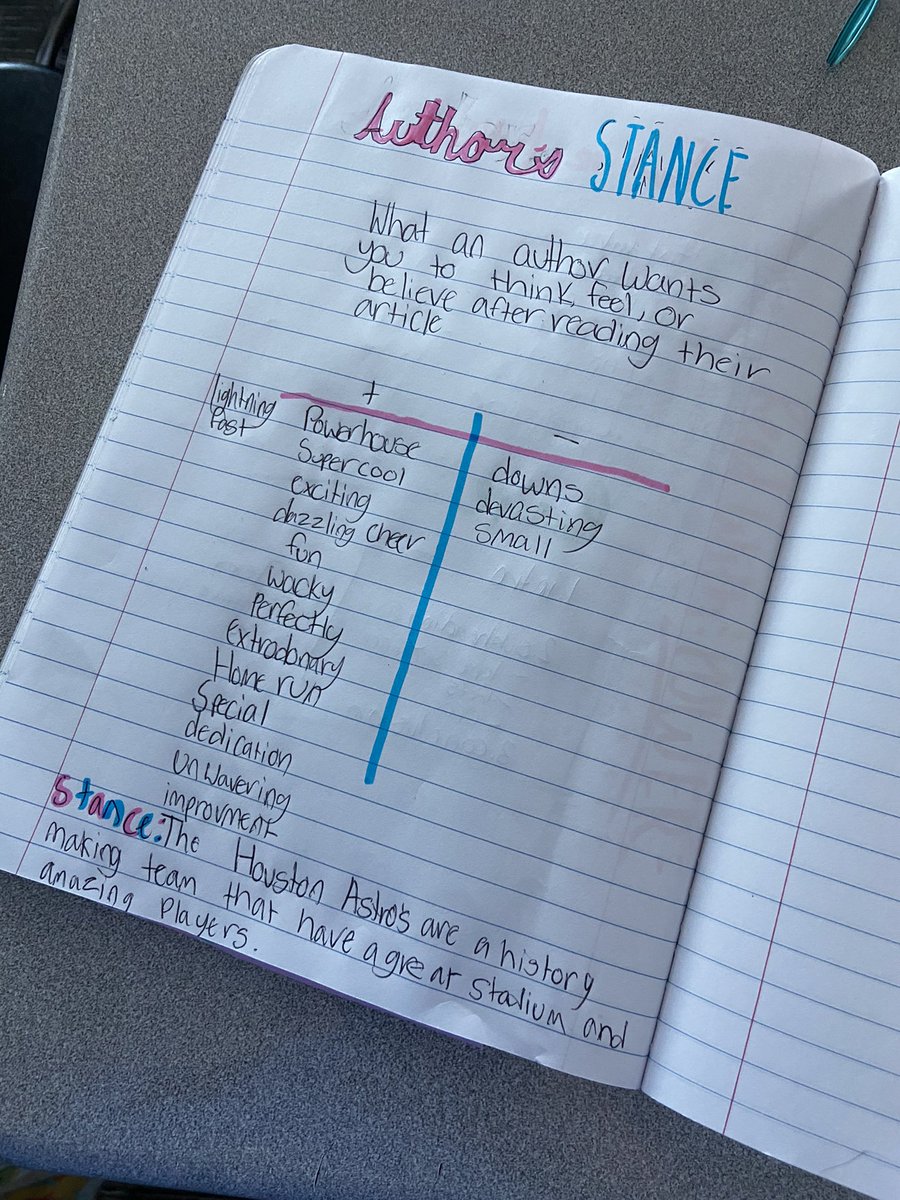 Author's STANCE
What an author wants
you to think, feel, or
believe after reading their
article
+
−
lightning
fast
Powerhouse
Super cool
exciting
dazzling cheer
fun
wacky
Perfectly
extradonary
Home run
Special
dedication
unwavering
improvment
downs
devasting
small
Stance: The Houston Astro's are a history
making team that have a great Stadium and
amazing players.